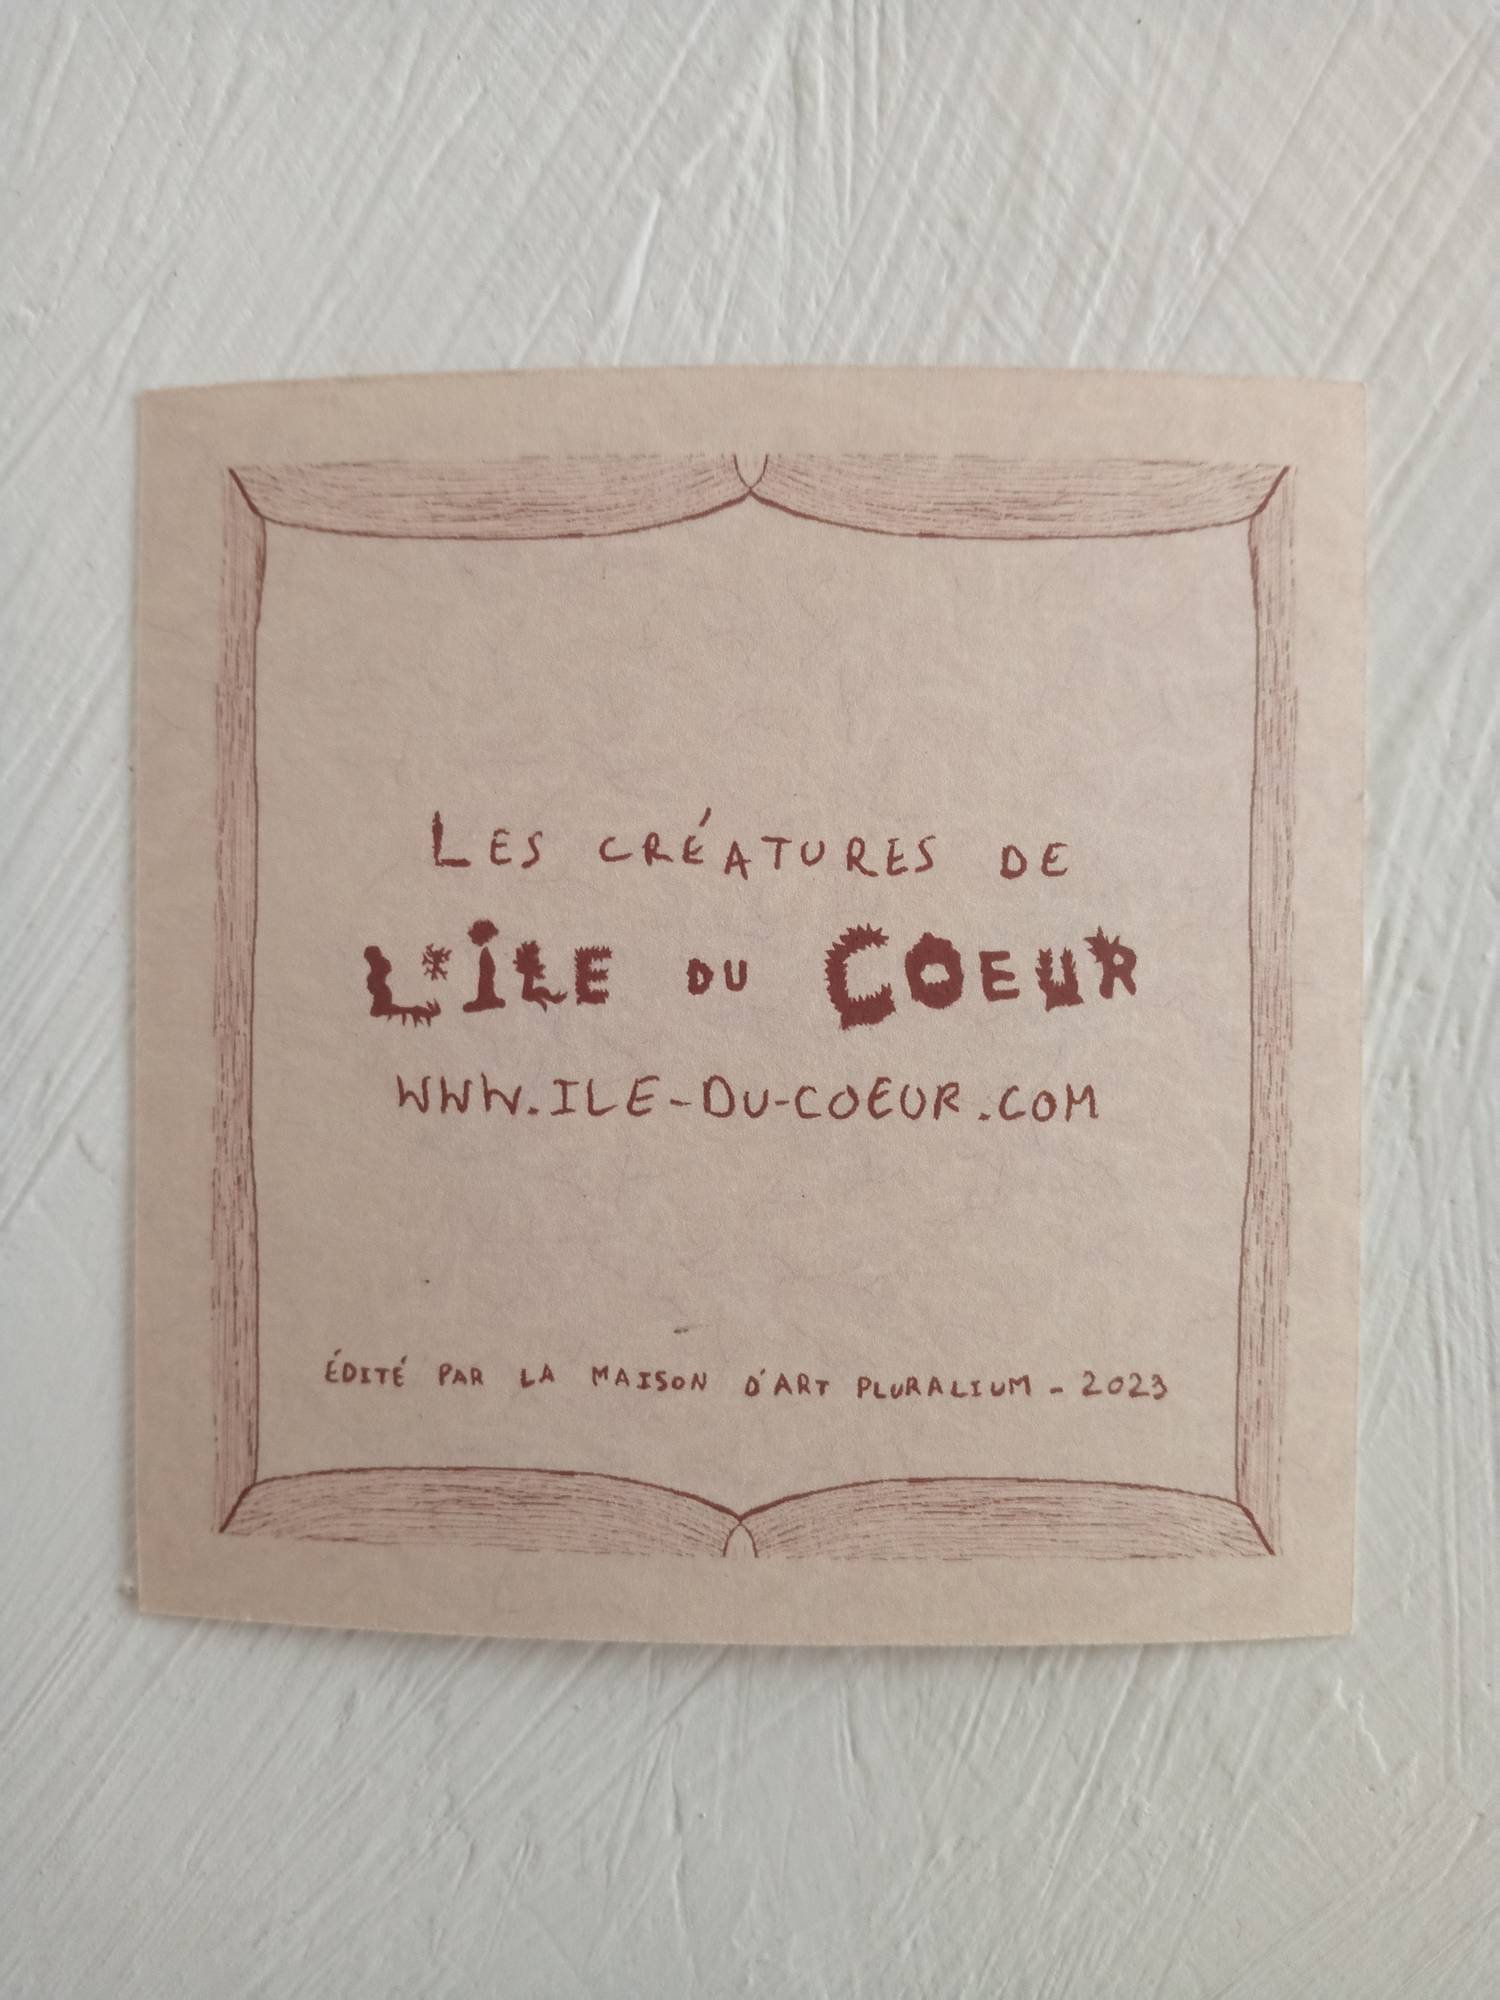 LES CRÉATURES DE
L'ÎLE DU COEUR
WWW.ILE-DU-COEUR.COM
ÉDITÉ PAR LA MAISON D'ART PLURALIUM - 2023